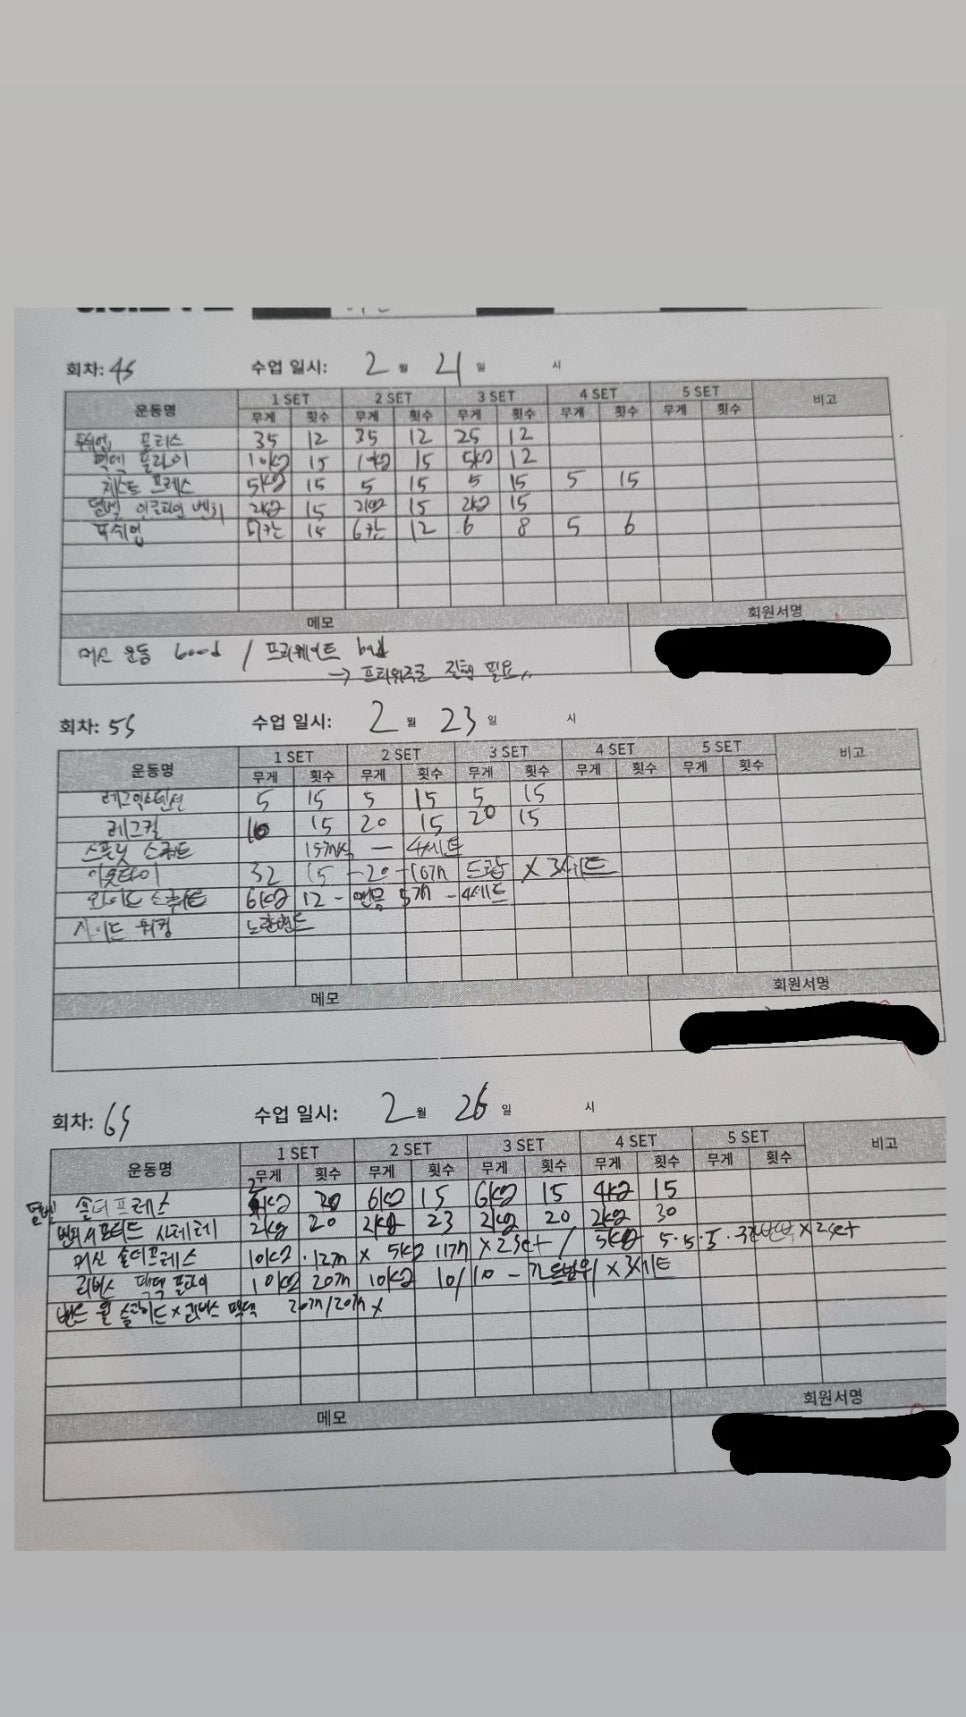 회차: 4S 수업 일시: 2 월 21 일 시
운동명 1 SET 2 SET 3 SET 4 SET 5 SET 비고
무게 횟수 무게 횟수 무게 횟수 무게 횟수 무게 횟수
푸쉬업 플러스 35 12 35 12 25 12
펙덱 플라이 10kg 15 10kg 15 5kg 12
체스트 프레스 5kg 15 5 15 5 15 5 15
덤벨 인클라인 벤치 2kg 15 2kg 15 2kg 15
푸쉬업 6칸 15 6칸 12 6 8 5 6
메모 회원서명
머신 운동 Good / 프리웨이트 bad
→ 프리위주로 진행 필요
회차: 5S 수업 일시: 2 월 23 일 시
운동명 1 SET 2 SET 3 SET 4 SET 5 SET 비고
무게 횟수 무게 횟수 무게 횟수 무게 횟수 무게 횟수
레그익스텐션 5 15 5 15 5 15
레그컬 10 15 20 15 20 15
스플릿 스쿼트 15개씩 - 4세트
이너타이 32 15 - 20 - 10개 드랍 x 3세트
와이드 스쿼트 6kg 12 - 맨몸 5개 - 4세트
사이드 워킹 노란밴드
메모 회원서명
회차: 6S 수업 일시: 2 월 26 일 시
운동명 1 SET 2 SET 3 SET 4 SET 5 SET 비고
무게 횟수 무게 횟수 무게 횟수 무게 횟수 무게 횟수
덤벨 숄더프레스 2kg 20 6kg 15 6kg 15 4kg 15
벤트 서포티드 사레레 2kg 20 2kg 23 2kg 20 2kg 30
머신 숄더프레스 10kg · 12개 x 5kg 11개 x 2set / 5kg 5·5·5· x 2set
리버스 펙덱 플라이 10kg 20개 10kg 10/10 - 가동범위 x 3세트
밴드 월 슬라이드 x 리버스 펙덱 20개/20개 x
메모 회원서명